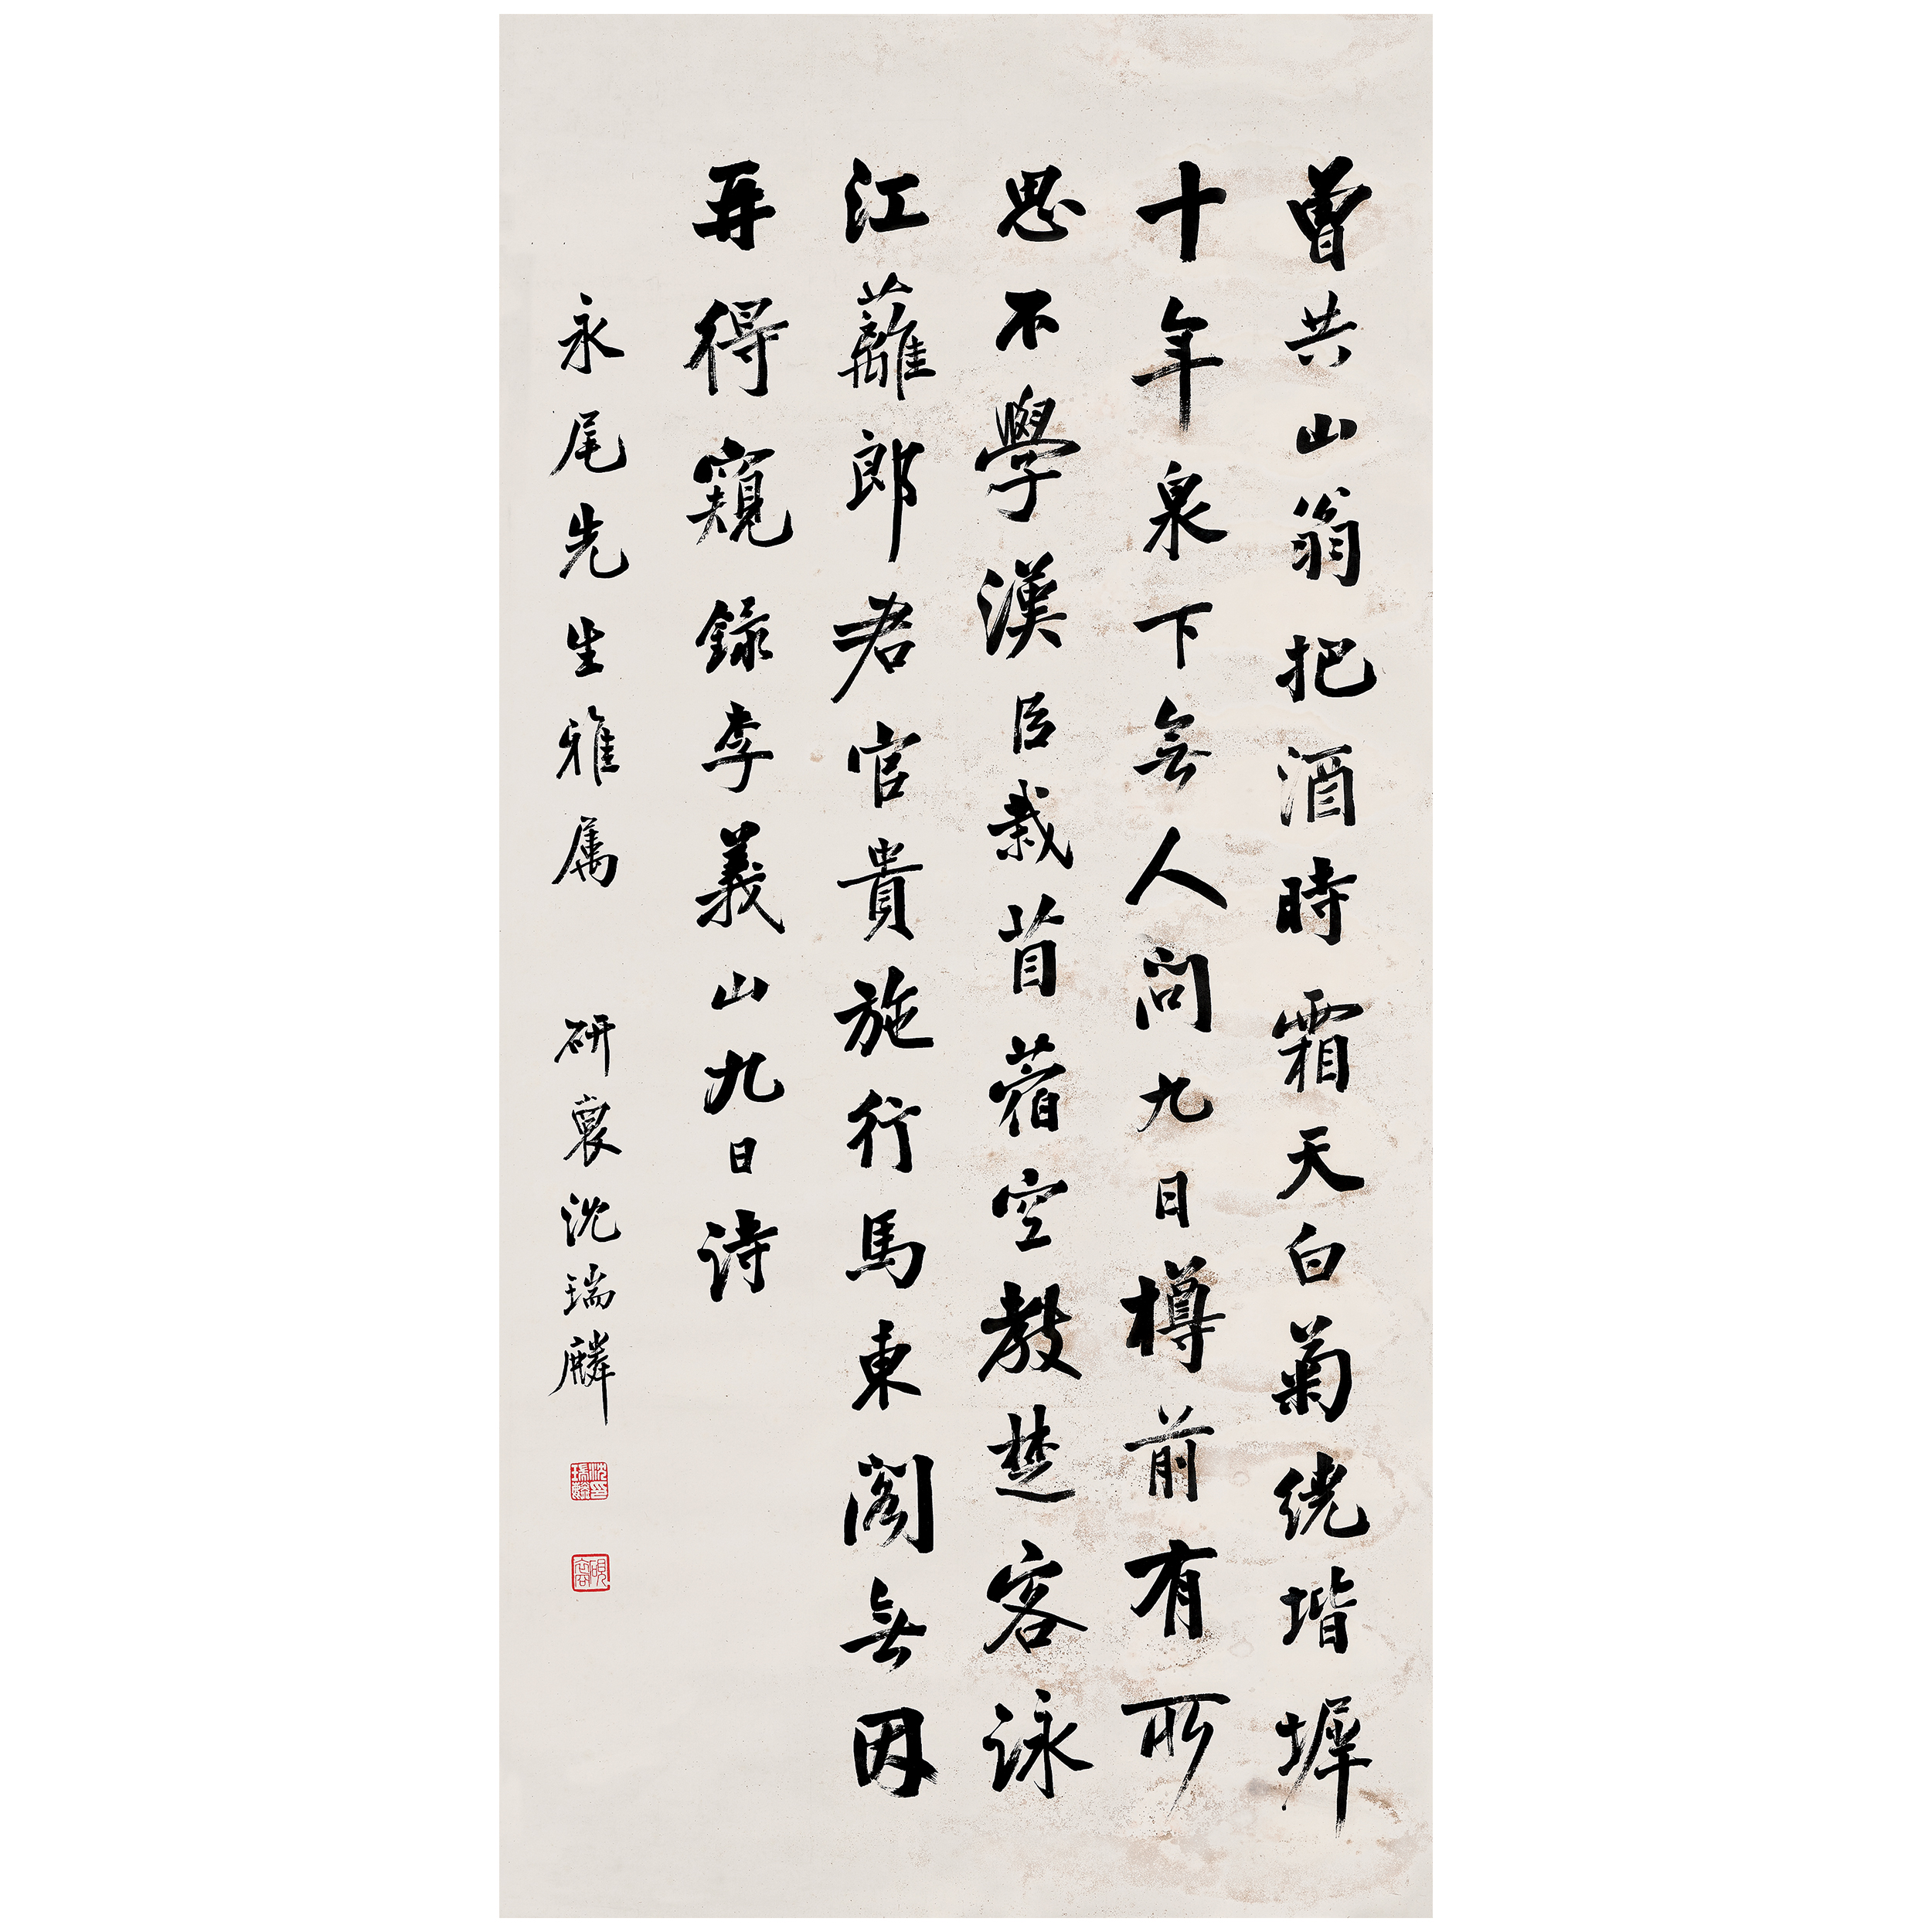 曾共山翁把酒時霜天白菊繞堦墀
十年泉下無人問九日樽前有所
思不學漢臣栽苜蓿空教楚客詠
江蘺郎君官貴施行馬東閣無因
再得窺錄李義山九日詩
永尾先生雅属 研裒沈瑞麟
沈瑞麟印
硯裒